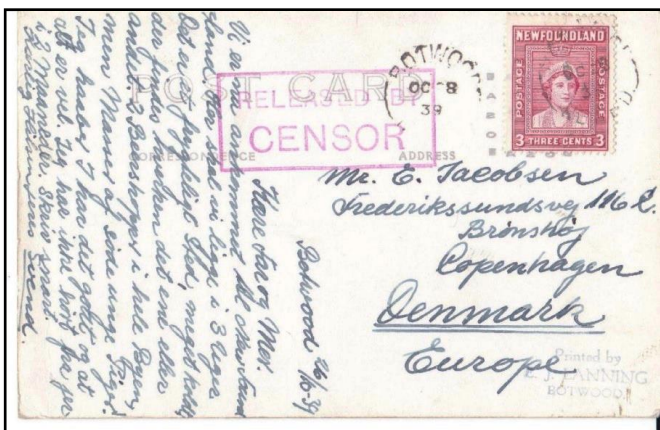 POST CARD
CORRESPONDENCE
ADDRESS
RELEASED BY
CENSOR
BOTWOOD
OC 8
39
NEWFOUNDLAND
POSTAGE
POSTAGE
3 THREE CENTS 3
Mr. E. Jacobsen
Frederikssundsvej 116
Brønshøj
Copenhagen
Denmark
Europe
Printed by
E. J. LANNING
BOTWOOD
Botwood
Kære Far og Mor.
Vi er nu ankommet til Newfound
land, Her skal vi ligge i 3 Uger
Det er et frygteligt Sted, meget koldt,
der findes hverken det ene eller
andet, 2 Beershopper i hele Byen,
men Masser af fine unge Piger.
Jeg haaber I har det godt og at
alt er vel. Jeg har ikke hørt fra jer
i 2 Maaneder. Skriv snart.
Kærlig Hilsen jeres Svend.